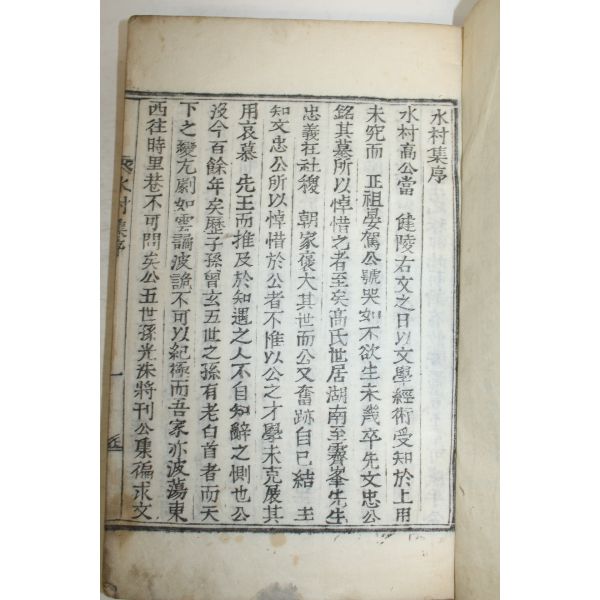 水村集序
水村高公當 健陵右文之日以文學經術受知於上用
未究而 正祖晏駕公號哭如不欲生未幾卒先文忠公
銘其墓所以悼惜之者至矣高氏世居湖南至霽峯先生
忠義在社稷 朝家褒大其世而公又奮跡自己結 主
知文忠公所以悼惜於公者不惟以公之才學未克展其
用哀慕 先王而推及於知遇之人不自知辭之惻也公
沒今百餘年矣歷子孫曾玄五世之孫有老白首者而天
下之變尢劇如雲譎波詭不可以紀極而吾家亦波蕩東
西往時里巷不可問矣公五世孫光洙將刊公集徧求文
水村集序
一